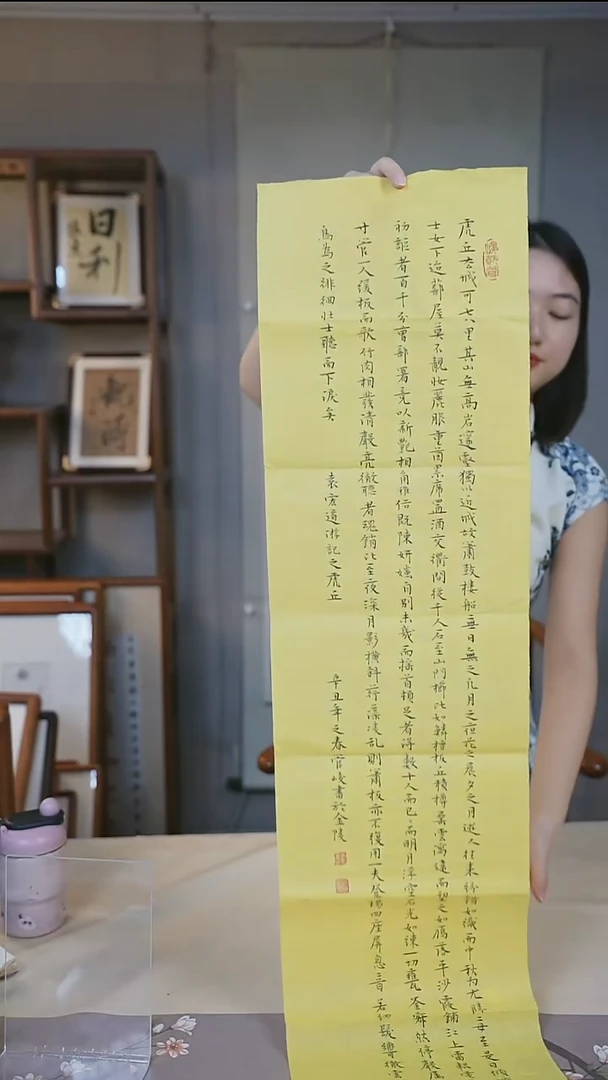 虎丘去城可七八里其山無高岩邃壑獨以近城故簫鼓樓船無日無之凡月之夜花之晨夕之月遊人往來紛錯如織而中秋為尤勝每至是日傾
士女下迨蔀屋莫不靚妝麗服重茵累席置酒交衢間從千人石至山門櫛比如鱗檀板丘積樽罍雲瀉遠而望之如雁落平沙霞鋪江上雷輥電
初謳者百千分曹部署竟以新艷相角雅俗既陳妍媸自別未幾而搖首頓足者得數十人而已而明月浮空石光如練一切瓦釜寂然停聲屬
寸管一人緩板而歌竹肉相發清聲亮徹聽者魂銷比至夜深月影橫斜荇藻凌亂則簫板亦不復用一夫登場四座屏息音若細髮響徹雲
鳥為之徘徊壯士聽而下淚矣
袁宏道游記之虎丘
辛丑年之春管峻書於金陵
日利